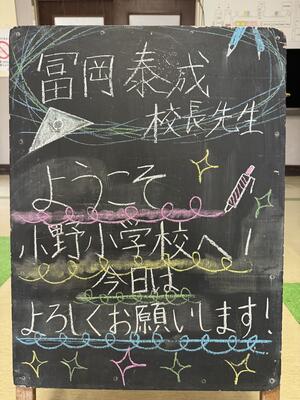 冨岡泰成
校長先生
ようこそ
小野小学校へ!
今日は
よろしくお願いします!